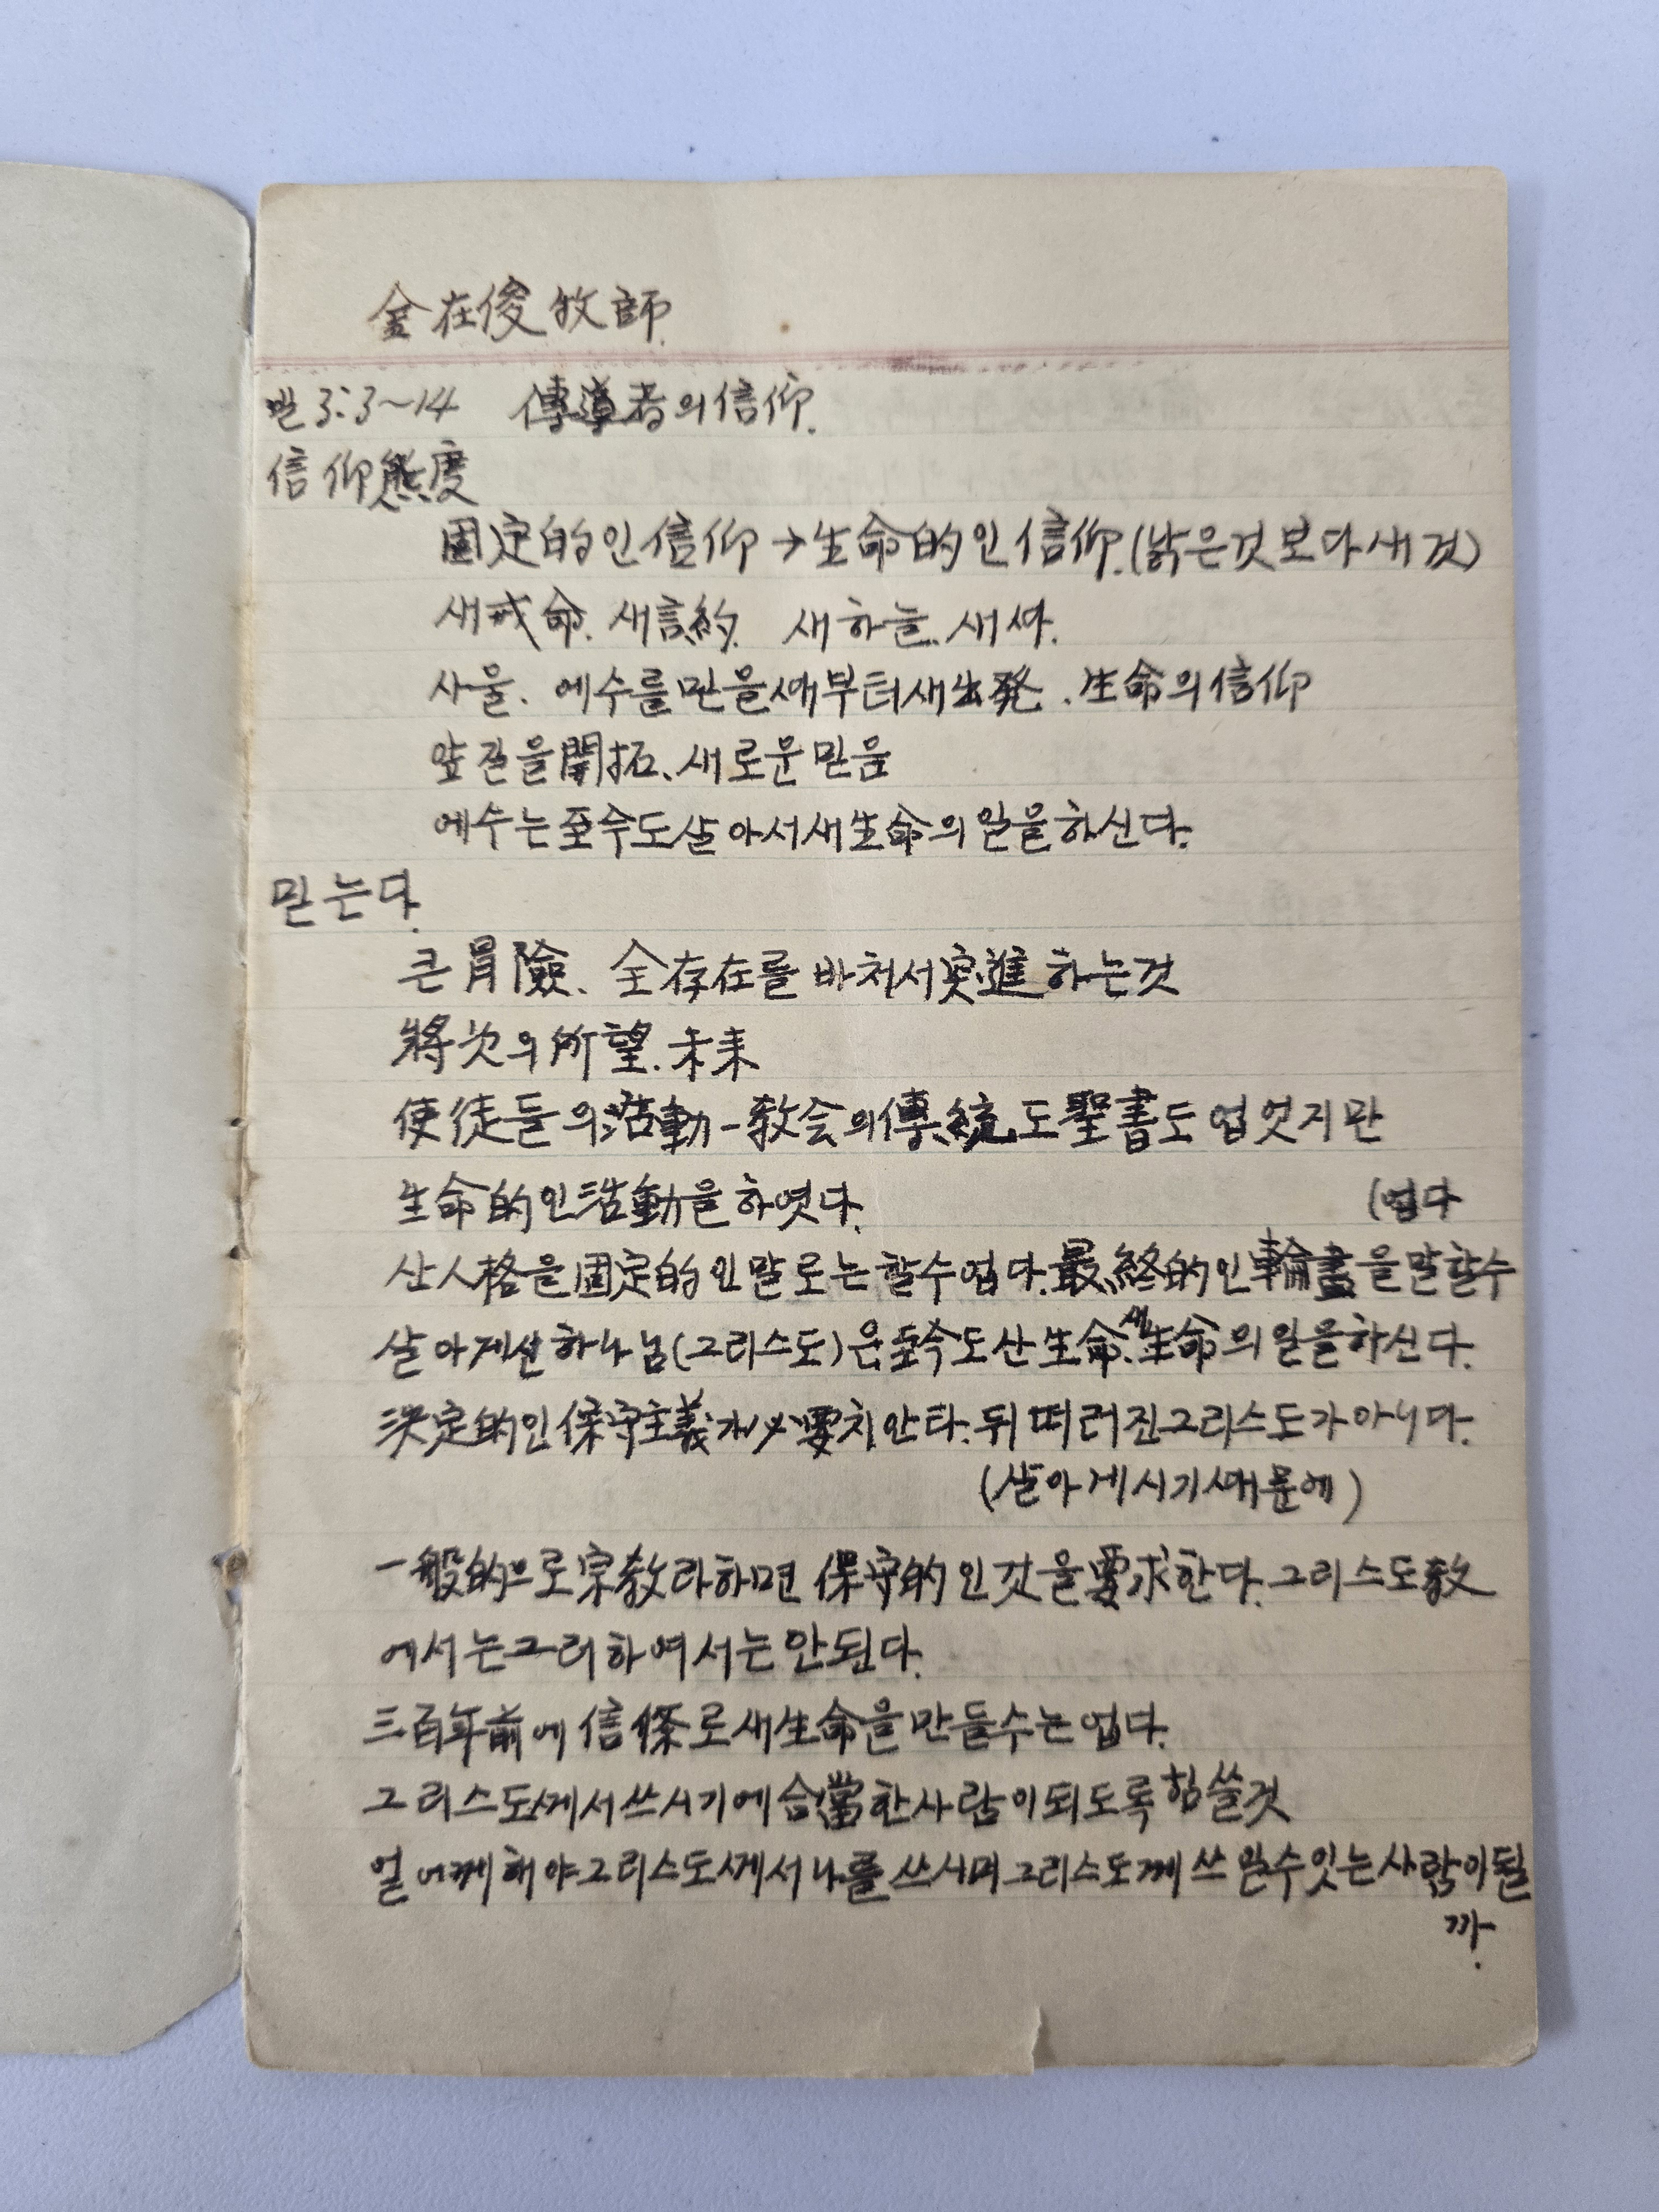 金在俊牧師.
빌 3:3~14 傳導者의信仰.
信仰態度
固定的인信仰→生命的인信仰.(낡은것보다새것)
새戒命. 새言約. 새하늘. 새ᄯᅡ.
사울. 예수를믿을ᄯᅢ부터새出発. 生命의信仰
앞길을開拓、새로운믿음
예수는至今도살아서새生命의일을하신다.
믿는다.
큰冒險、全存在를바처서突進하는것
將次의所望.未来
使徒들의活動-教会의傳統도聖書도업엇지만
生命的인活動을하엿다.
(업다
산人格을固定的인말로는할수업다.最終的인輪畫을말할수
살아게신하나님(그리스도)은至今도산生命、새生命의일을하신다.
決定的인保守主義가必要치안타.뒤떠러진그리스도가아니다.
(살아게시기ᄯᅢ문에)
一般的으로宗教라하면保守的인것을要求한다.그리스도教
에서는그러하여서는안된다.
三百年前에信條로새生命을만들수는업다.
그리스도ᄭᅦ서쓰시기에合當한사람이되도록힘쓸것
얻어케해야그리스도ᄭᅦ서나를쓰시며그리스도께쓰일수잇는사람이될
까.